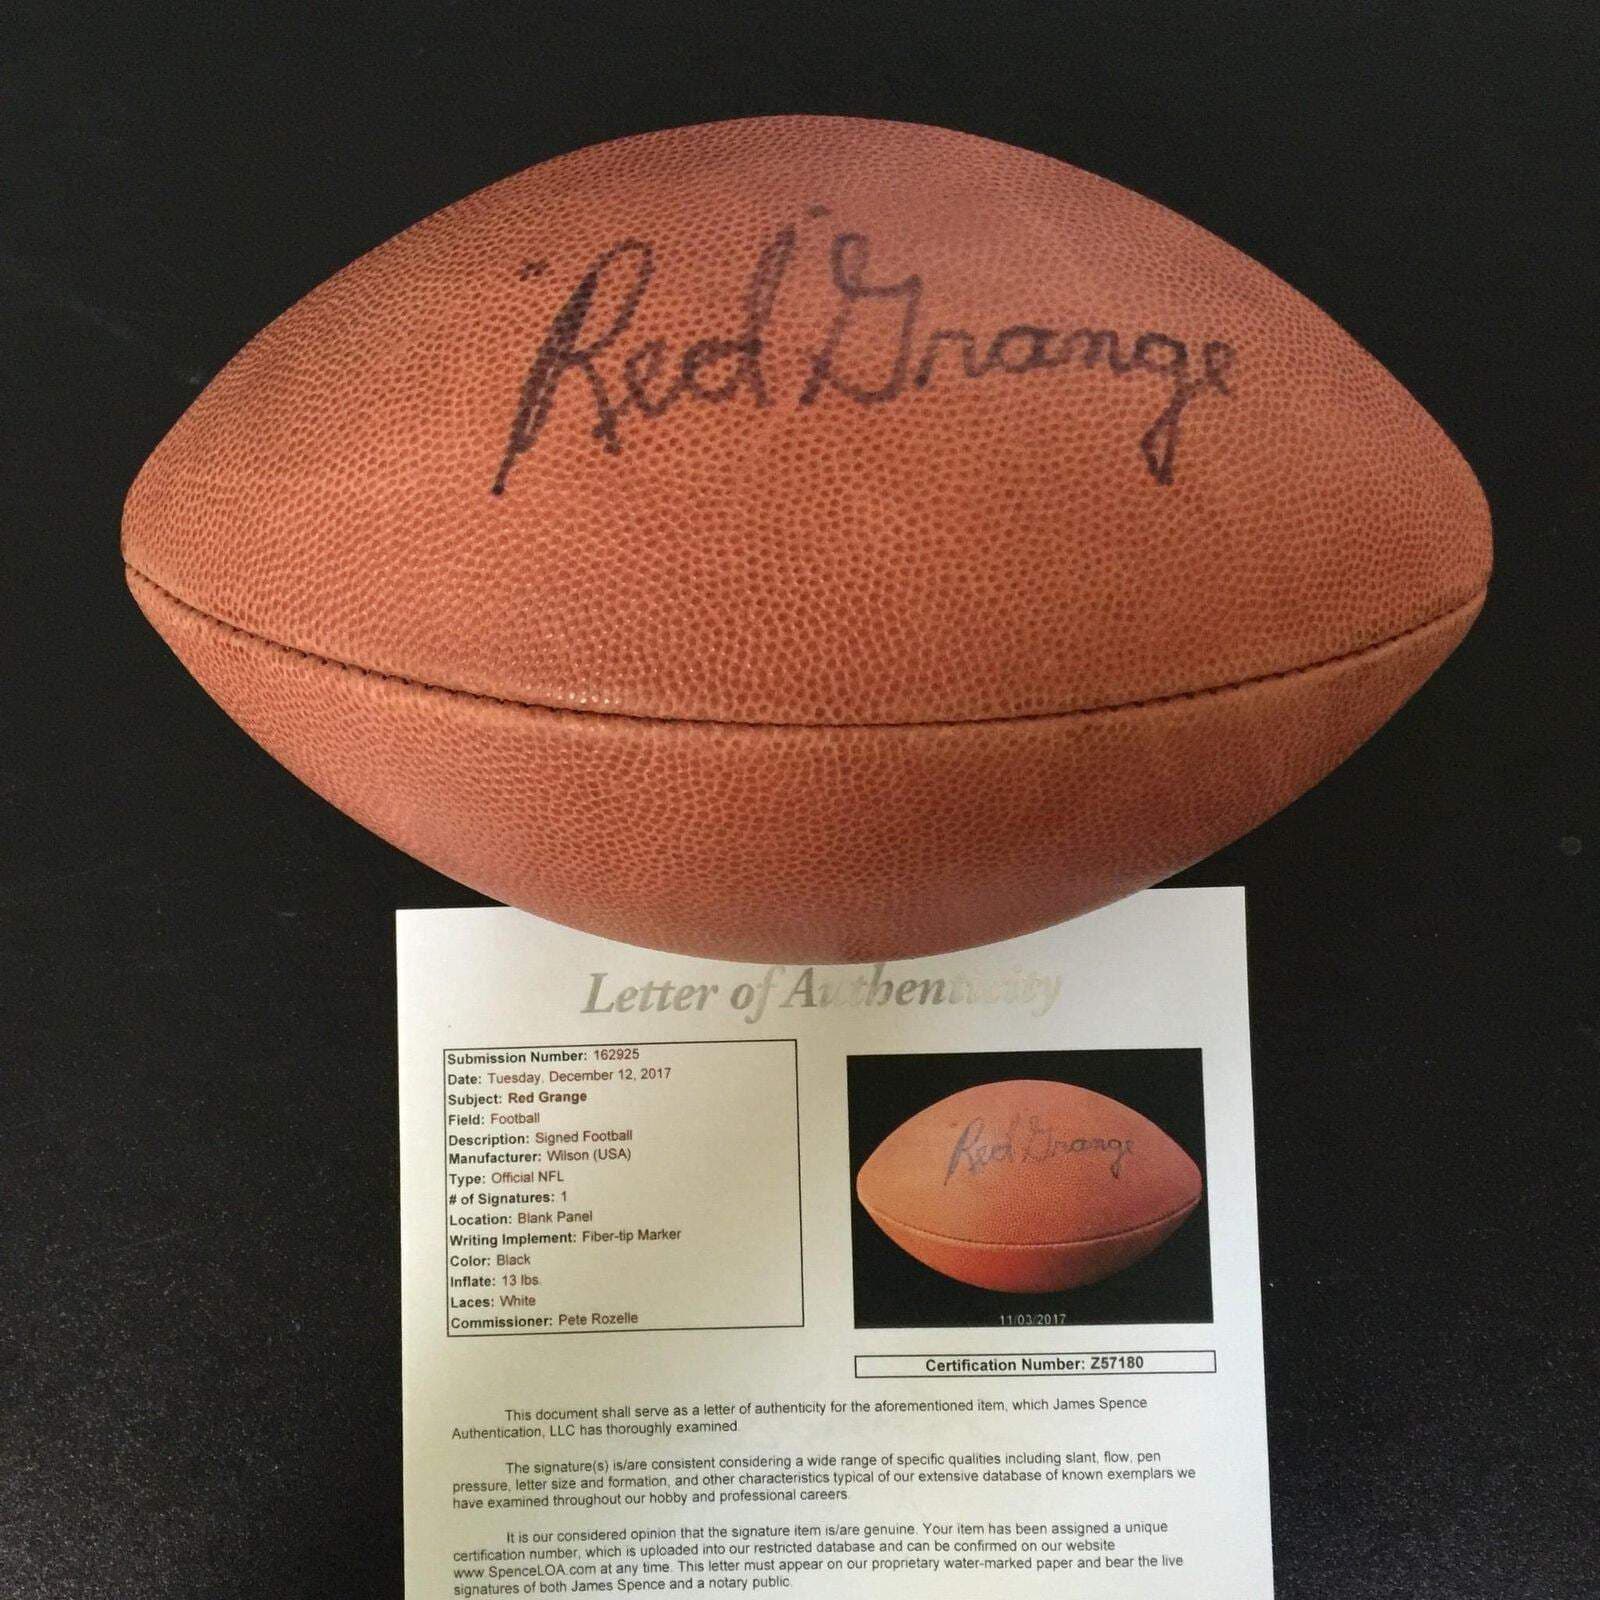 "Red" Grange
Letter of Authenticity
Submission Number: 162925
Date: Tuesday, December 12, 2017
Subject: Red Grange
Field: Football
Description: Signed Football
Manufacturer: Wilson (USA)
Type: Official NFL
# of Signatures: 1
Location: Blank Panel
Writing Implement: Fiber-tip Marker
Color: Black
Inflate: 13 lbs.
Laces: White
Commissioner: Pete Rozelle
"Red" Grange
11/03/2017
Certification Number: Z57180
This document shall serve as a letter of authenticity for the aforementioned item, which James Spence
Authentication, LLC has thoroughly examined.
The signature(s) is/are consistent considering a wide range of specific qualities including slant, flow, pen
pressure, letter size and formation, and other characteristics typical of our extensive database of known exemplars we
have examined throughout our hobby and professional careers.
It is our considered opinion that the signature item is/are genuine. Your item has been assigned a unique
certification number, which is uploaded into our restricted database and can be confirmed on our website
www.SpenceLOA.com at any time. This letter must appear on our proprietary water-marked paper and bear the live
signatures of both James Spence and a notary public.